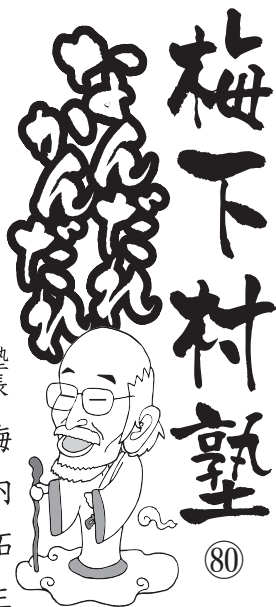 梅下村塾
80
なんだれ
かんだれ
塾長 梅内拓生